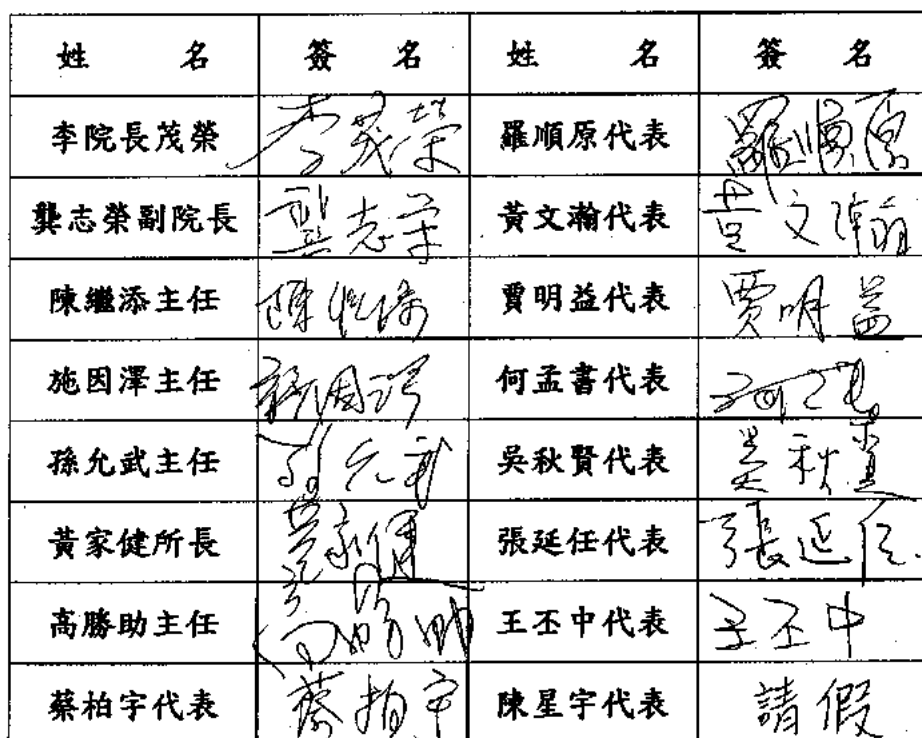 姓名 簽名 姓名 簽名
李院長茂榮 李茂榮 羅順原代表 羅順原
龔志榮副院長 龔志荣 黃文瀚代表 黃文瀚
陳繼添主任 陳繼添 賈明益代表 賈明益
施因澤主任 施因澤 何孟書代表
孫允武主任 孫允武 吳秋賢代表 吳秋賢
黃家健所長 黃家健 張延任代表 張延任
高勝助主任 高勝助 王丕中代表 王丕中
蔡柏宇代表 蔡柏宇 陳星宇代表 請假